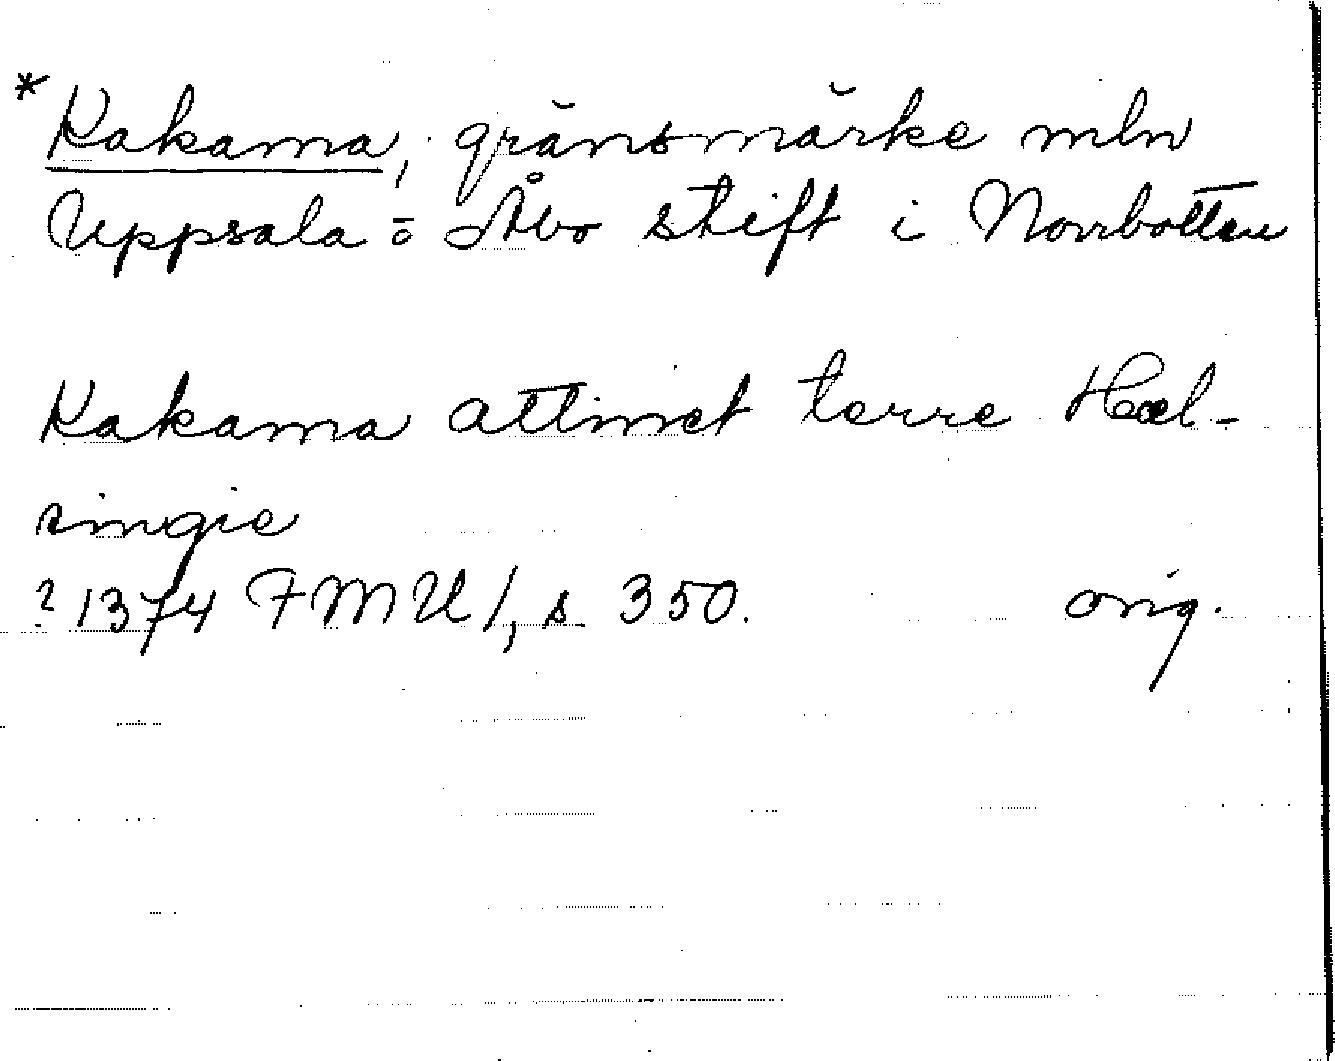 *Kakama, gränsmärke mln
Uppsala o Åbo stift i Norrbotten
Kakama attinet terre Hæl-
singie
? 1374 FMU 1, s 350. orig.